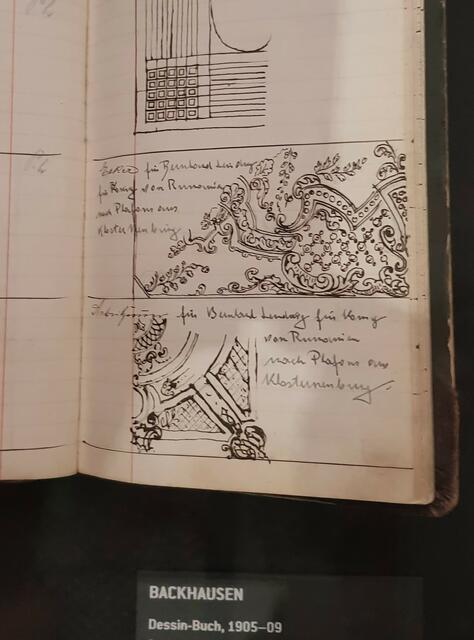 Ecke für Bernhard Ludwig
für König von Rumänien
nach Plafons aus
Klosterneuburg
für Bernhard Ludwig für König
von Rumänien
nach Plafons aus
Klosterneuburg.
BACKHAUSEN
Dessin-Buch, 1905–09